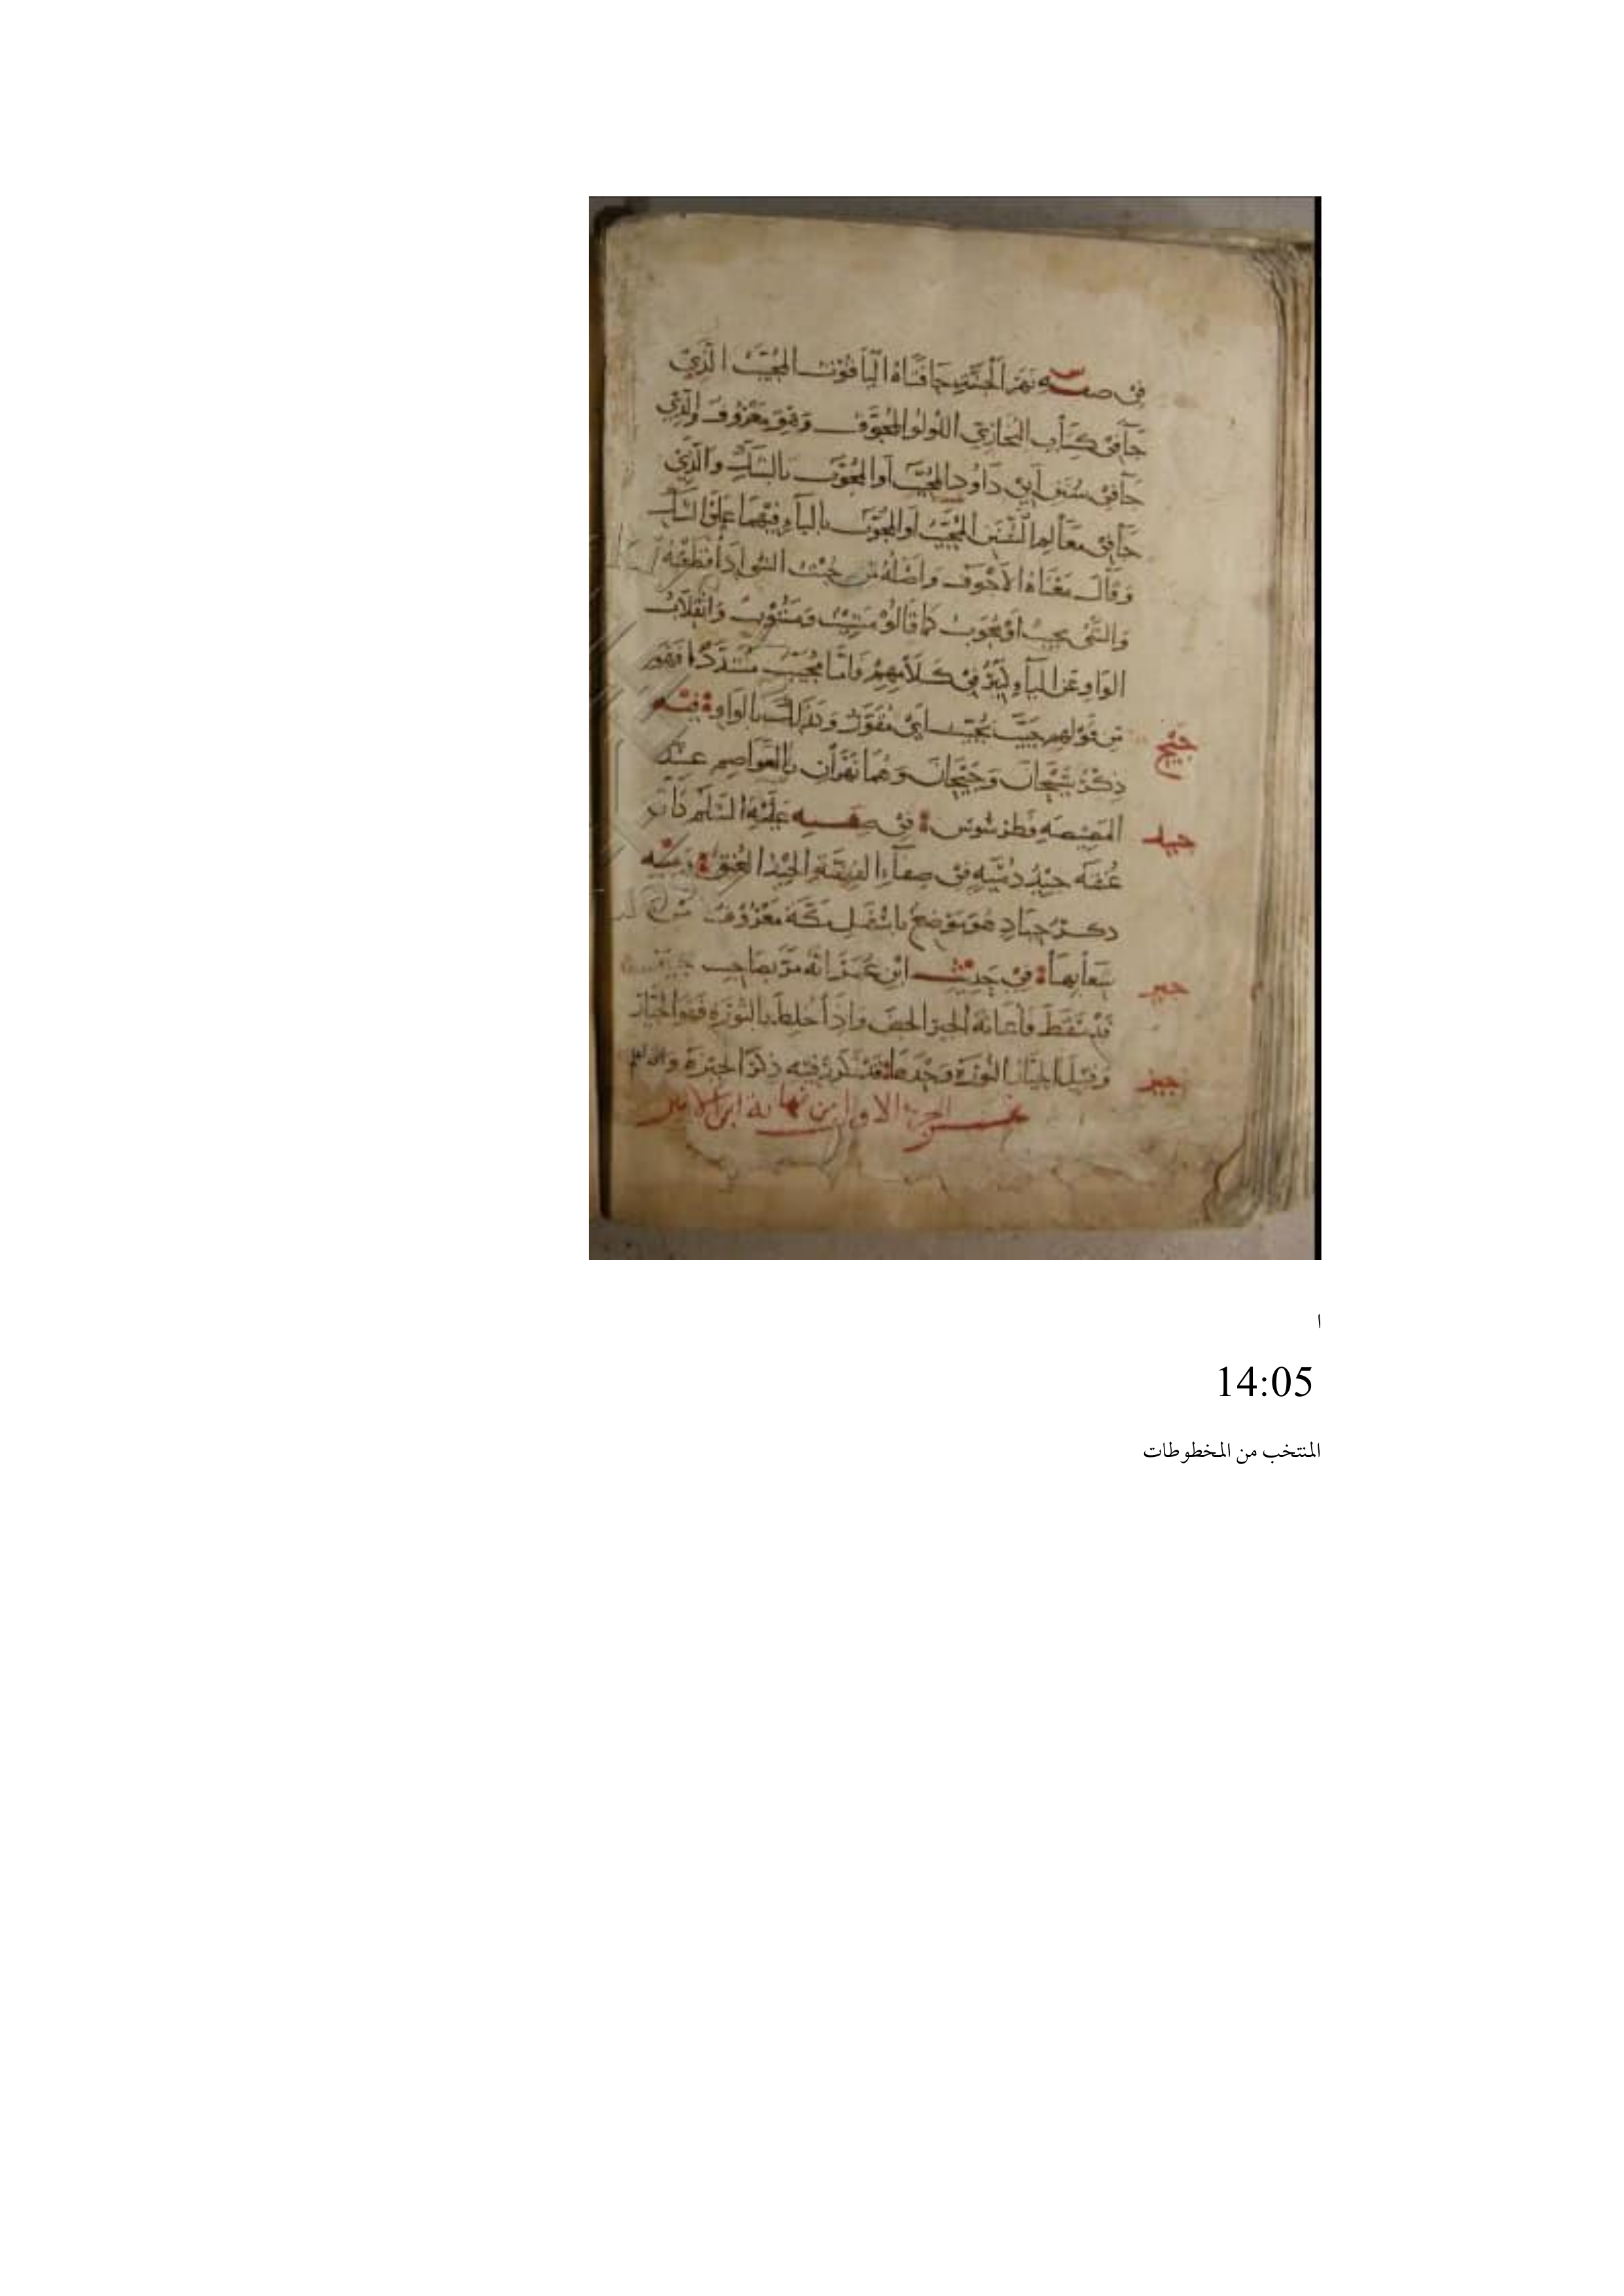 في صفة نهر الجنة حافتاه الياقوت المجيب الذي
جآ في كتاب البخاري اللولو المجوف وهو معروف والذي
جآ في سنن ابي داود المجيب او المجوف بالشك والذي
جآ في معالم السنن المجيب او المجوب بالبآ فيهما على الشك
وقال معناه الاجوف واصله من جبت الشي اذا قطعته
والشي مجيب او مجوب كما قالو مشيب ومشوب وانقلاب
الواو عن اليآ كثير في كلامهم واما مجيب مشددا فهو
من قولهم جيب يجيب اي مقور وكذلك بالواو فيه
جيح
ذكر سيحان وجيحان وهما نهران بالعواصم عند
المصيصه وطرسوس في صفته عليه السلم كان
جيد
عنقه جيد دميه في صفآ الفضة الجيد العنق وفيه
ذكر جياد هو موضع باسفل مكة معروف من
شعابها في حديث ابن عمر انه مر بصاحب
جير
قد سقط فاعانه الجير الجص واذا خلط بالنورة فهو الجيار
وقيل الجيار النورة وحدها قد تكرر فيه ذكر الجيزة والله اعلم
جيز
الجزء الاول من نهاية ابن الاثير
ا
14:05
المنتخب من المخطوطات